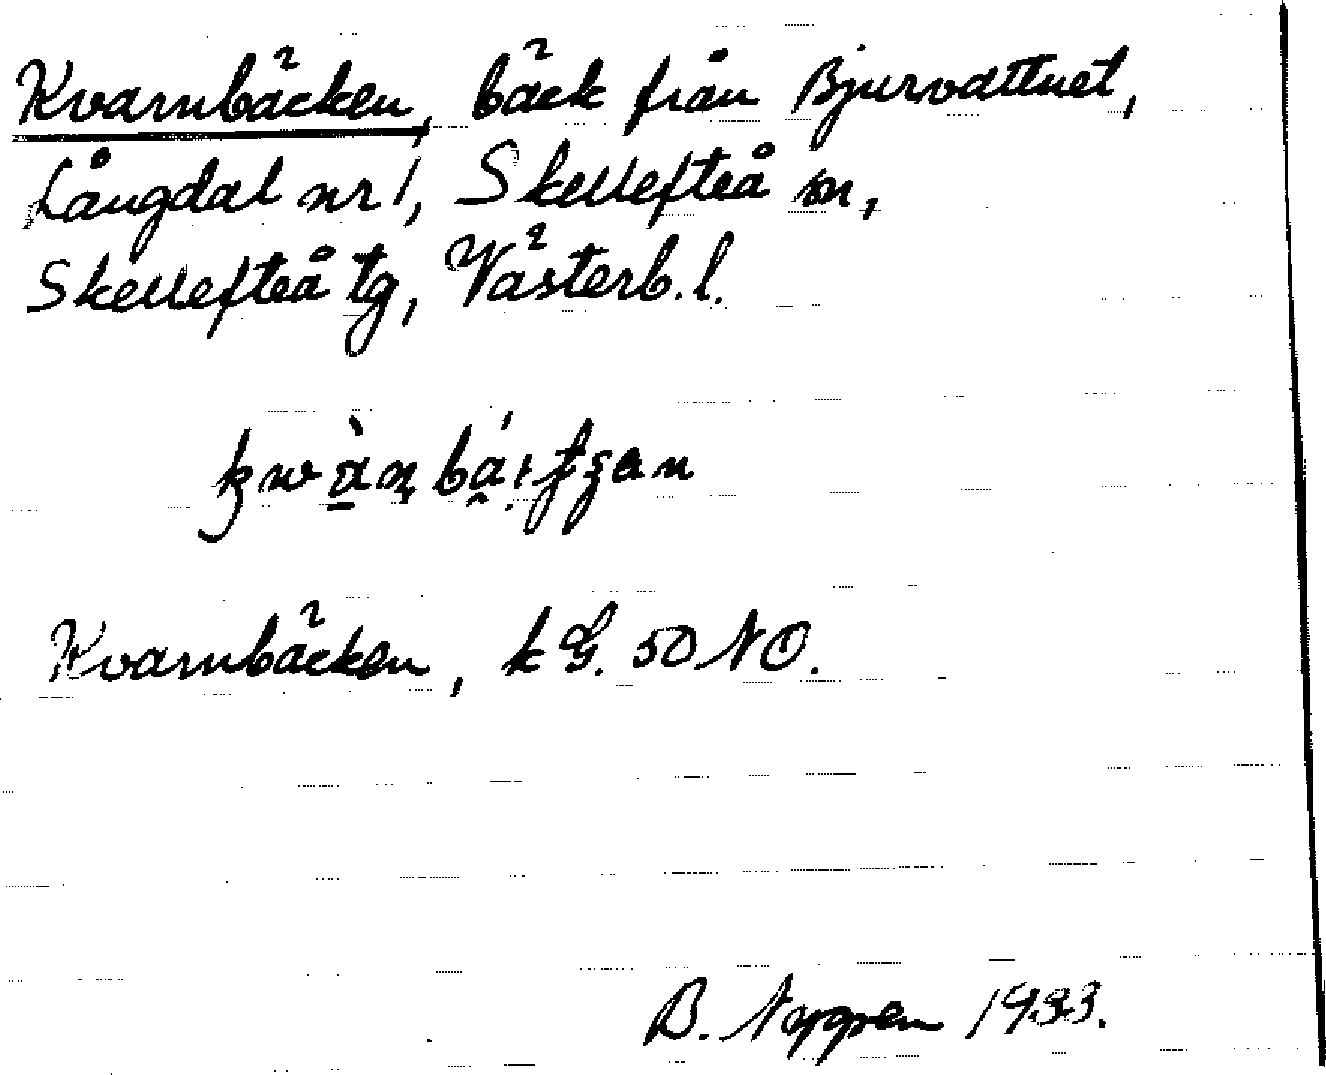 Kvarnbäcken, bäck från Bjurvattnet,
Långdal nr 1, Skellefteå sn,
Skellefteå tg, Västerb. l.
Kvarnbäcken, kG. 50 NO.
B. Nygren 1933.